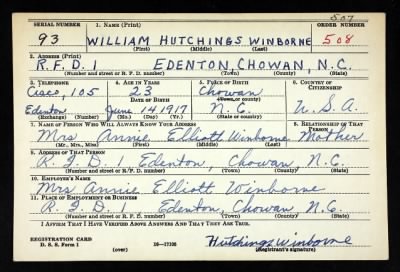 507
SERIAL NUMBER 1. NAME (Print) ORDER NUMBER
93 WILLIAM HUTCHINGS WINBORNE 508
(First) (Middle) (Last)
2. ADDRESS (Print)
R.F.D. 1 EDENTON, CHOWAN, N.C.
(Number and street or R. F. D. number) (Town) (County) (State)
3. TELEPHONE 4. AGE IN YEARS 5. PLACE OF BIRTH 6. COUNTRY OF CITIZENSHIP
Cisco, 105 23 Chowan
DATE OF BIRTH (Town or county)
Edenton June 14 1917 N.C. U.S.A.
(Exchange) (Number) (Mo.) (Day) (Yr.) (State or country)
7. NAME OF PERSON WHO WILL ALWAYS KNOW YOUR ADDRESS 8. RELATIONSHIP OF THAT PERSON
Mrs Annie Elliott Winborne Mother
(Mr., Mrs., Miss) (First) (Middle) (Last)
9. ADDRESS OF THAT PERSON
R.F.D. 1 Edenton, Chowan N.C.
(Number and street or R. F. D. number) (Town) (County) (State)
10. EMPLOYER'S NAME
Mrs Annie Elliott Winborne
11. PLACE OF EMPLOYMENT OR BUSINESS
R.F.D. 1 Edenton, Chowan N.C.
(Number and street or R. F. D. number) (Town) (County) (State)
I AFFIRM THAT I HAVE VERIFIED ABOVE ANSWERS AND THAT THEY ARE TRUE.
REGISTRATION CARD
D. S. S. Form 1 (over) 16-17105 Hutchings Winborne
(Registrant's signature)